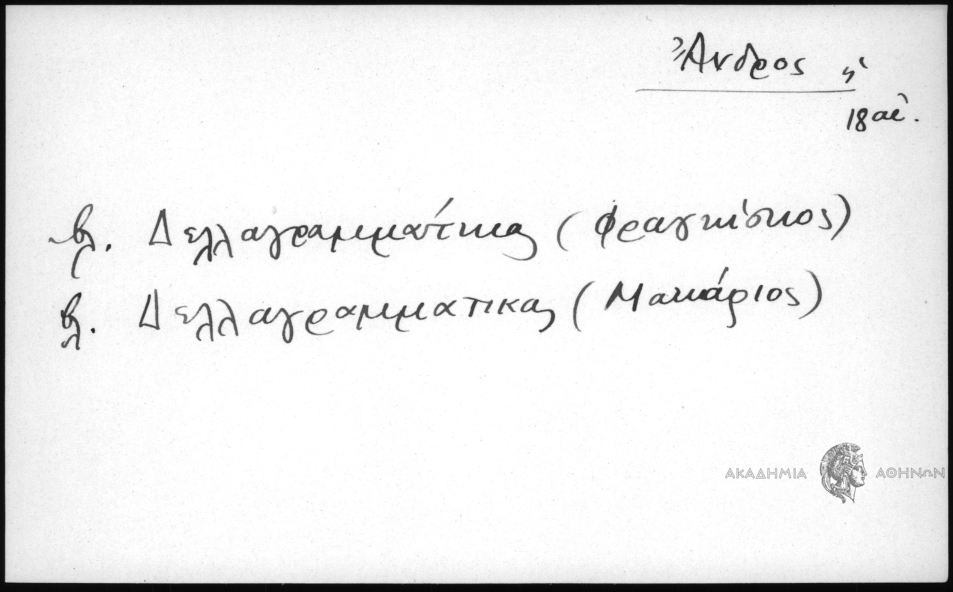 Ἄνδρος ἡ
18 αἰ.
βλ. Δελλαγραμμάτικας (Φραγκίσκος)
βλ. Δελλαγραμματικας (Μακάριος)
ΑΚΑΔΗΜΙΑ ΑΘΗΝΩΝ